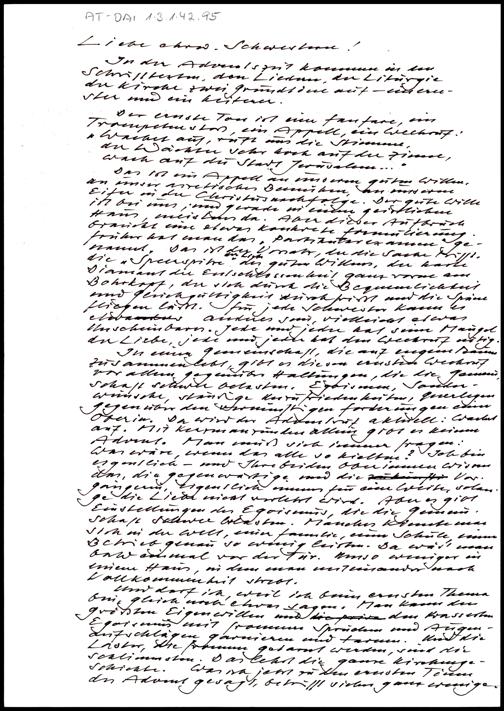 AT-DAI 1.3.1.42.95
Liebe ehrw. Schwestern!
In der Adventszeit kommen in den
Schrifttexten, den Liedern, der Liturgie
der Kirche zwei Grundtöne auf - ein ern-
ster und ein heiterer.
Der ernste Ton ist eine Fanfare, ein
Trompetenstoß, ein Appell, ein Weckruf:
"Wachet auf, ruft uns die Stimme,
der Wächter sehr hoch auf der Zinne,
wach auf du Stadt Jerusalem..."
Das ist ein Appell an unseren guten Willen,
an unser asketisches Bemühen, an unseren
Eifer in der Christusnachfolge. Der gute Wille
ist bei uns, und gerade in einem geistlichen
Haus, meistens da. Aber dieser Aufbruch
braucht eine etwas konkrete Formulierung.
Früher hat man das "Partikularexamen" ge-
nannt. Das ist der Vorsatz, der die Sache trifft.
die "Speerspitze" des guten Willens, der harte
Diamant der Entschlossenheit ganz vorne am
Bohrkopf, der sich durch die Bequemlichkeit
und Gleichgültigkeit durchfrißt und die Späne
fliegen läßt. Für jede Schwester kann es
anderes sein, vielleicht etwas
Unscheinbares. Jede und jeder hat seine Mängel
der Liebe, jede und jeder hat den Weckruf nötig.
In einer Gemeinschaft, die auf engem Raum
zusammenlebt, gibt es diesen ernsten Weckruf
vor allem gegenüber Haltungen, die die Gemein-
schaft schwer belasten. Egoismen, Sonder-
wünsche, ständige Unzufriedenheiten, Querlegen
gegenüber den vernünftigen Forderungen einer
Oberin. Da wird der Adventsruf aktuell: Wachet
auf. Mit Kerzenanzünden allein gibt es keinen
Advent. Man muß sich immer fragen:
Was wäre, wenn das alle so hielten? Ich bin
eigentlich - und Ihre beiden Oberinnen wissen
das, die gegenwärtige und die Vor-
gängerin, eigentlich immer für eine Weite, solan-
ge die Liebe nicht verletzt wird. Aber es gibt
Einstellungen des Egoismus, die die Gemein-
schaft schwer belasten. Manches könnte man
sich in der Welt, einer Familie, einer Schule, einem
Betrieb genau so wenig leisten. Da wär' man
bald einmal vor der Tür. Umso weniger in
einem Haus, in dem man miteinander nach
Vollkommenheit strebt.
Und darf ich, weil ich beim ernsten Thema
bin, gleich noch etwas sagen. Man kann den
größten Eigenwillen und den krassesten
Egoismus mit frommen Sprüchen und Augen-
aufschlägen garnieren und tarnen. Und die
Laster, die fromm getarnt werden, sind die
schlimmsten. Das lehrt die ganze Kirchenge-
schichte. Was ich jetzt zu den ernsten Tönen
des Advent gesagt, betrifft sicher ganz wenige.